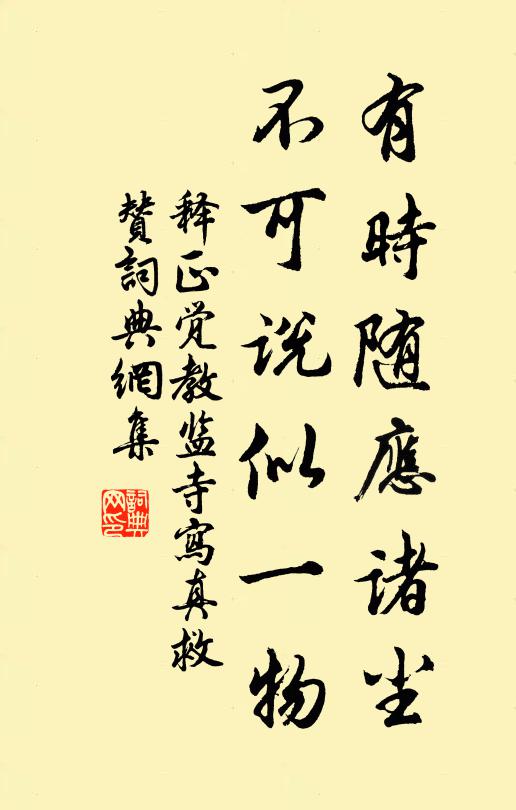 有時随應諸尘
不可说似一物
释正觉教监寺寫真救
赞詞典網集
詞典
网印